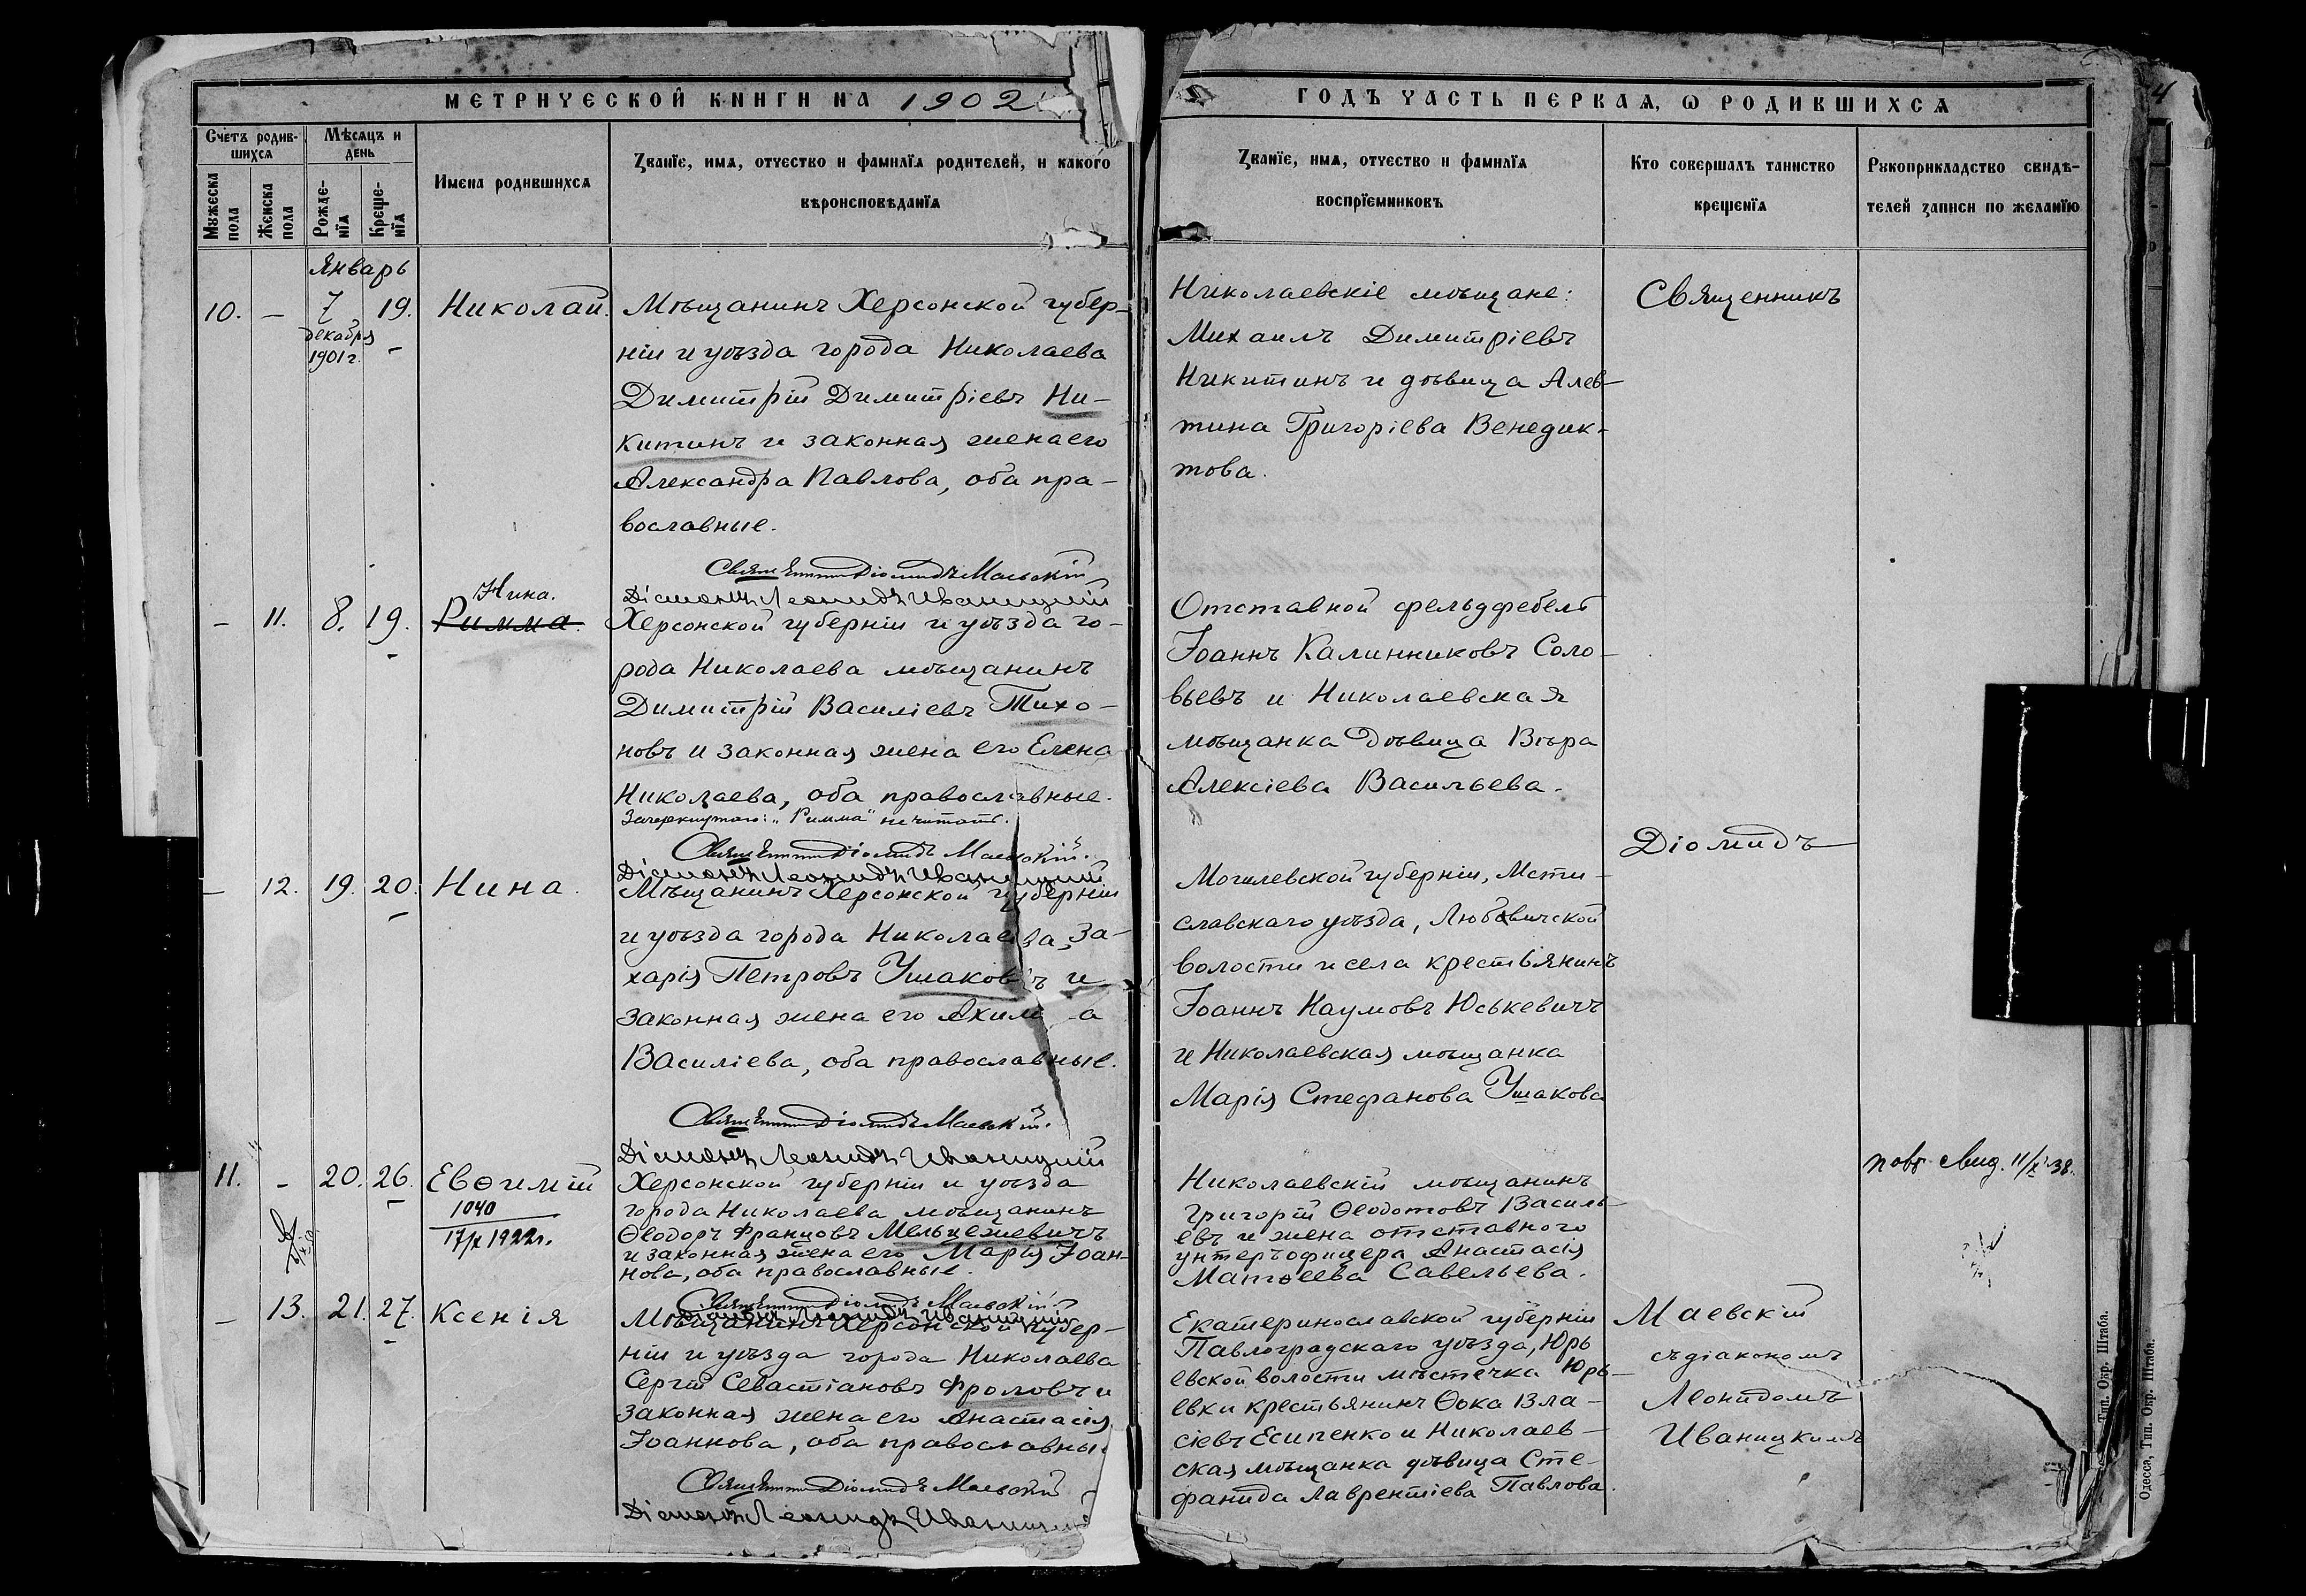 МЕТРИЧЕСКОЙ КНИГИ НА 1902
Счетъ родив-
шихся
Мѣсяцъ и
день
Мужеска
пола
Женска
пола
Рожде-
нія
Креще-
нія
Имена родившихся
Званіе, имя, отчество и фамилія родителей, и какого
вѣроисповѣданія
Январь
10. – 7 19. Николай.
декабря
1901 г.
Мѣщанинъ Херсонской губер-
ніи и уѣзда города Николаева
Димитрій Димитріевъ Ни-
китинъ и законная жена его
Александра Павлова, оба пра-
вославные.
Священникъ Діомидъ Маевскій
Діаконъ Леонидъ Иваницкій
– 11. 8. 19. Нина.
Римма.
Херсонской губерніи и уѣзда го-
рода Николаева мѣщанинъ
Димитрій Василіевъ Тихо-
новъ и законная жена его Елена
Николаева, оба православные.
Зачеркнутого: „Римма" не читать.
Священникъ Діомидъ Маевскій.
Діаконъ Леонидъ Иваницкій
– 12. 19. 20. Нина.
Мѣщанинъ Херсонской губерніи
и уѣзда города Николаева, За-
харія Петровъ Ушаковъ и
законная жена его
Василіева, оба православные.
Священникъ Діомидъ Маевскій.
Діаконъ Леонидъ Иваницкій
11. – 20. 26. Евѳимій
1040
17/X 1922 г.
Херсонской губерніи и уѣзда
города Николаева мѣщанинъ
Ѳеодоръ Францовъ Мельцежевичъ
и законная жена его Марія Іоан-
нова, оба православные.
Священникъ Діомидъ Маевскій.
Діаконъ Леонидъ Иваницкій
– 13. 21. 27. Ксенія
Мѣщанинъ Херсонской губер-
ніи и уѣзда города Николаева
Сергій Севастіановъ Фроловъ и
законная жена его Анастасія
Іоаннова, оба православные
Священникъ Діомидъ Маевскій
Діаконъ Леонидъ Иваницкій
ГОДЪ ЧАСТЬ ПЕРВАЯ, О РОДИВШИХСЯ
Званіе, имя, отчество и фамилія
воспріемниковъ
Кто совершалъ таинство
крещенія
Рукоприкладство свидѣ-
телей записи по желанію
Николаевскіе мѣщане:
Михаилъ Димитріевъ
Никитинъ и дѣвица Алев-
тина Григоріева Венедик-
това.
Отставной фельдфебель
Іоаннъ Калинниковъ Соло-
вьевъ и Николаевская
мѣщанка дѣвица Вѣра
Алексіева Васильева.
Могилевской губерніи, Мсти-
славскаго уѣзда, Любовичской
волости и села крестьянинъ
Іоаннъ Наумовъ Юськевичъ
и Николаевская мѣщанка
Марія Стефанова Ушакова
Николаевскій мѣщанинъ
Григорій Ѳеодотовъ Василь-
евъ и жена отставного
унтеръофицера Анастасія
Матѳеева Савельева.
Екатеринославской губерніи
Павлоградскаго уѣзда, Юрь
евской волости мѣстечка Юрь-
евки крестьянинъ Ѳока Вла-
сіевъ Есипенко и Николаев-
ская мѣщанка дѣвица Сте-
фанида Лаврентіева Павлова.
Священникъ
Діомидъ
Маевскій
съ діакономъ
Леонидомъ
Иваницкимъ
повт. свид. 11/X 38.
4
Тип. Окр. Штаба.
Одесса, Тип. Окр. Штаба.